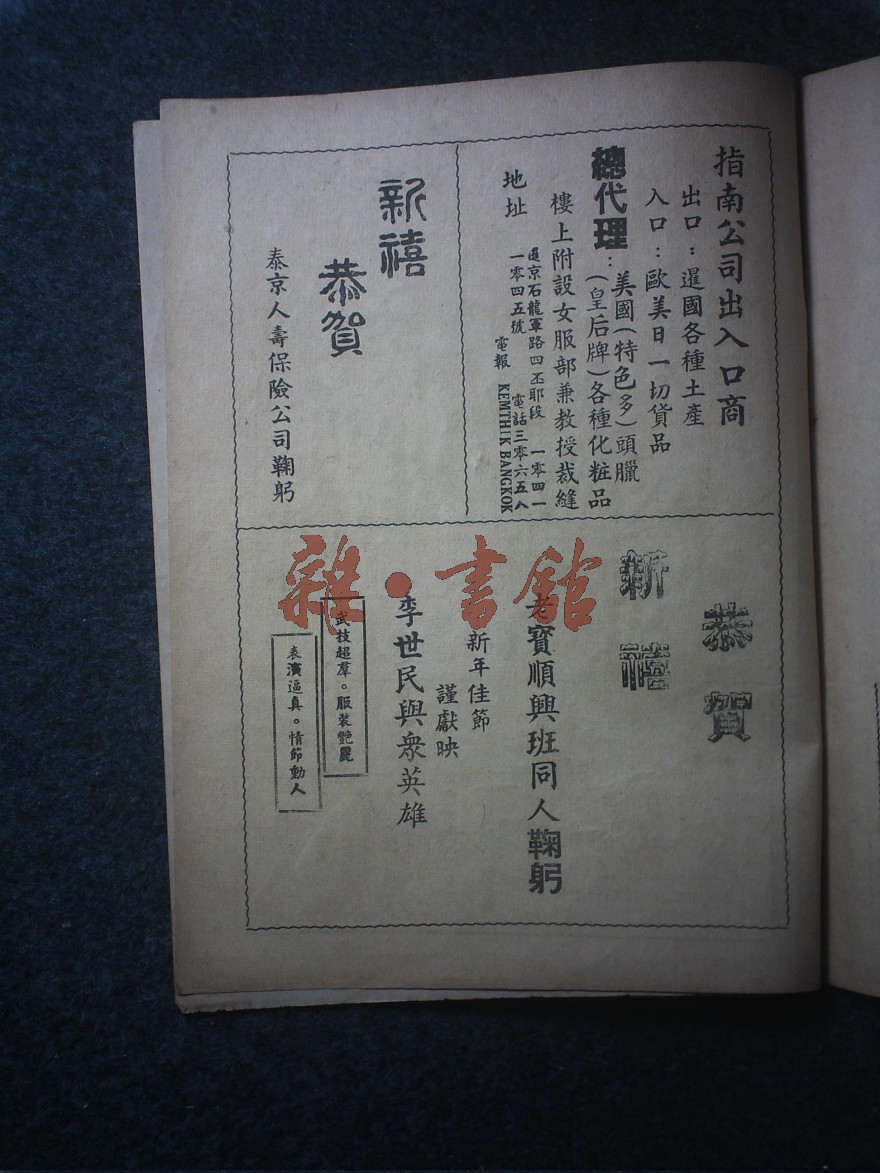 指南公司出入口商
出口：暹國各種土產
入口：歐美日一切貨品
總代理：美國(特色多)頭臘
(皇后牌)各種化粧品
樓上附設女服部兼教授裁縫
地址
暹京石龍軍路四丕耶段 一零四一
一零四五號 電話三零六五八
電報 KEMTHIK BANGKOK
新禧
恭賀
泰京人壽保險公司鞠躬
恭賀
新禧
老寶順興班同人鞠躬
新年佳節
謹獻映
李世民與衆英雄
武技超羣。服裝艷麗
表演逼真。情節動人
雜·書館